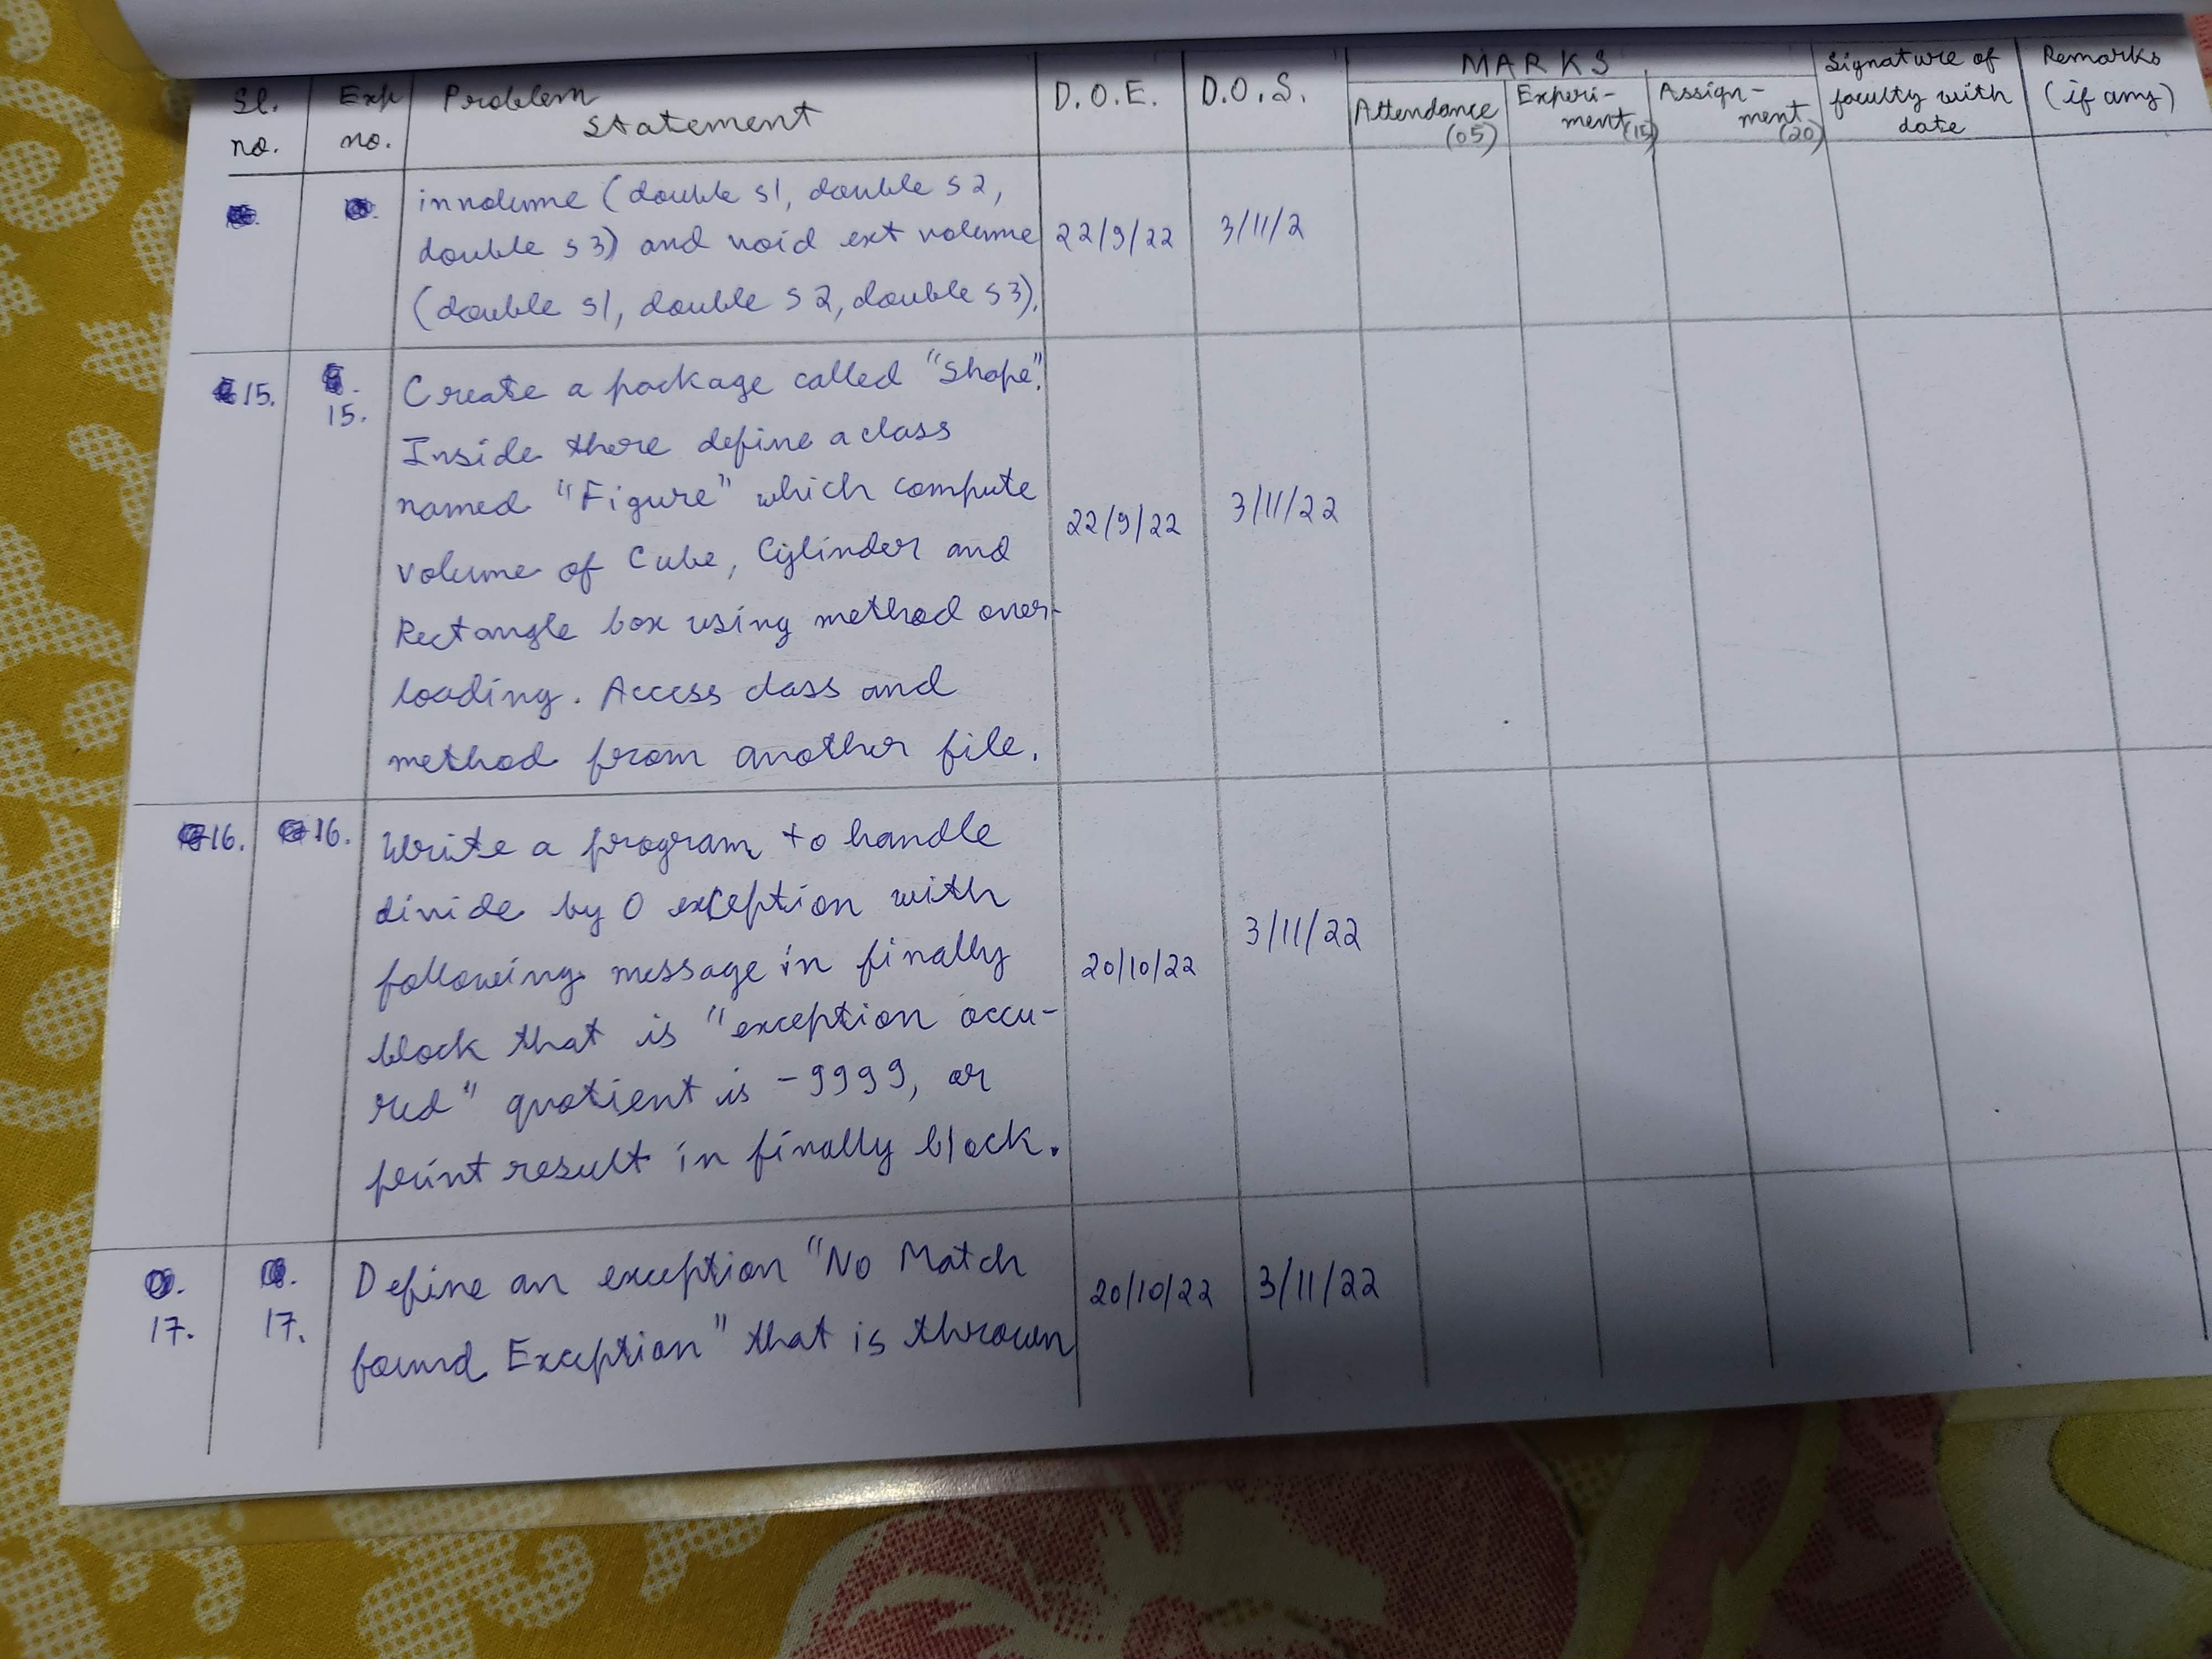 Sl. no.
Exp no.
Problem Statement
D.O.E.
D.O.S.
MARKS
Attendance (05)
Experi- ment (15)
Assign- ment (20)
Signature of faculty with date
Remarks (if any)
involume (double s1, double s2,
double s3) and void ext volume
(double s1, double s2, double s3).
22/9/22
3/11/2
15.
15.
Create a package called "Shape".
Inside there define a class
named "Figure" which compute
volume of Cube, Cylinder and
Rectangle box using method over-
loading. Access class and
method from another file.
22/9/22
3/11/22
16.
16.
Write a program to handle
divide by 0 exception with
following message in finally
block that is "exception occu-
red" quotient is -999, or
print result in finally block.
20/10/22
3/11/22
17.
17.
Define an exception "No Match
found Exception" that is thrown
20/10/22
3/11/22